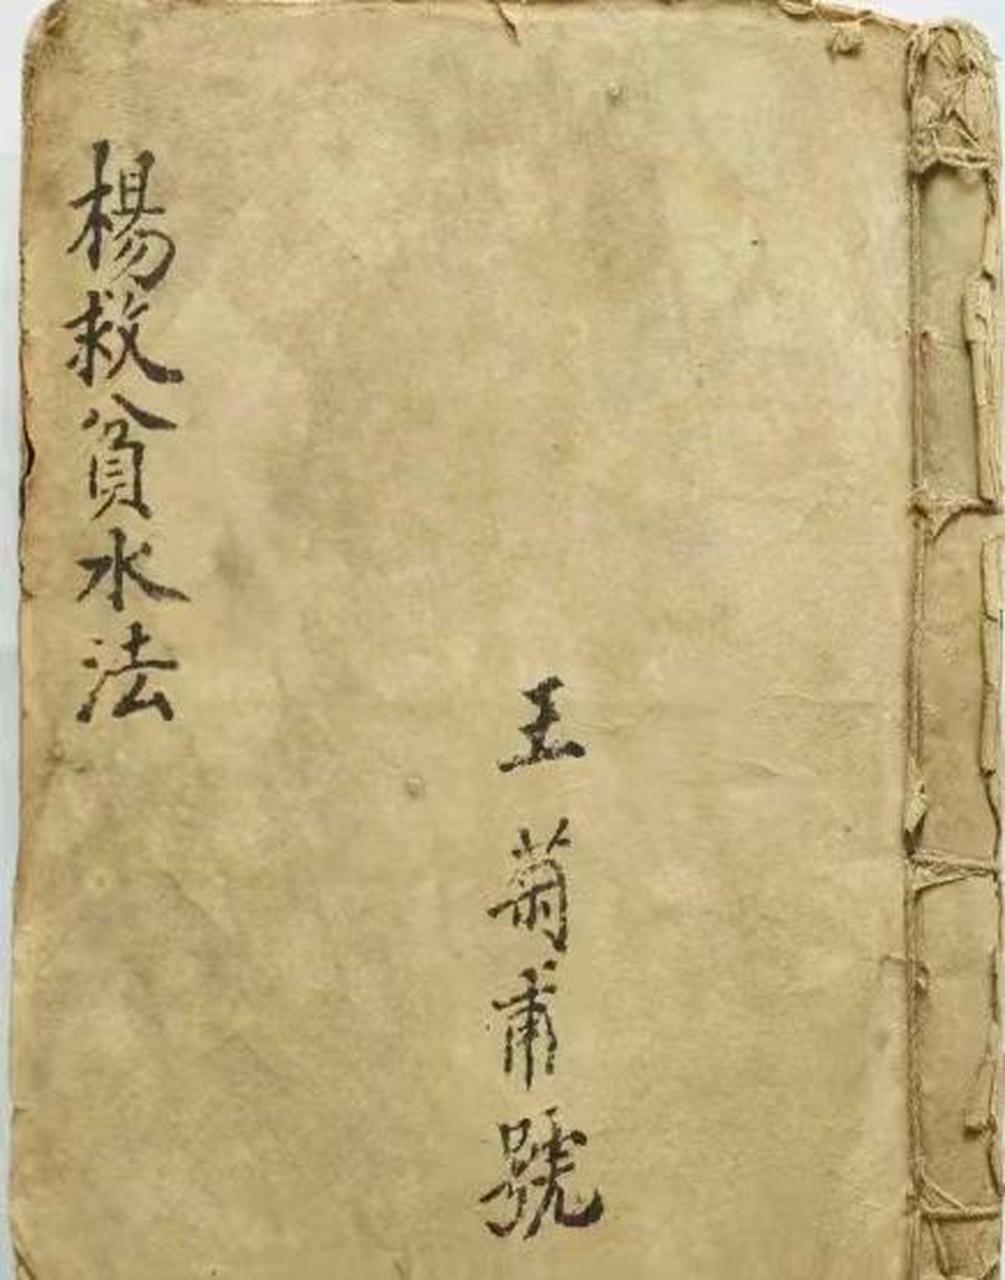 楊救貧水法
王菊甫號